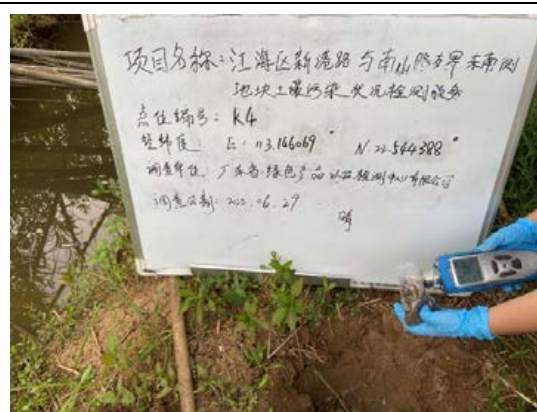 项目名称:江海区新港路与南山路交界东南侧
地块土壤污染状况检测服务
点位编号:K4
经纬度: E:113.146069° N:22.544388°
调查单位:广东省绿色产品认证检测中心有限公司
调查日期:2022.06.29
晴